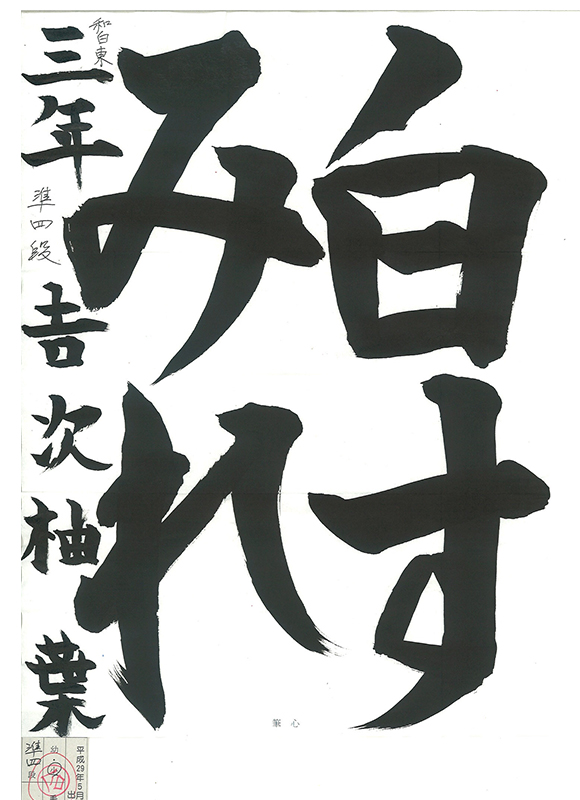 白す
みれ
和白東
三年 準四段 吉次柚葉
心筆
平成29年5月
出
幼・小
準四段